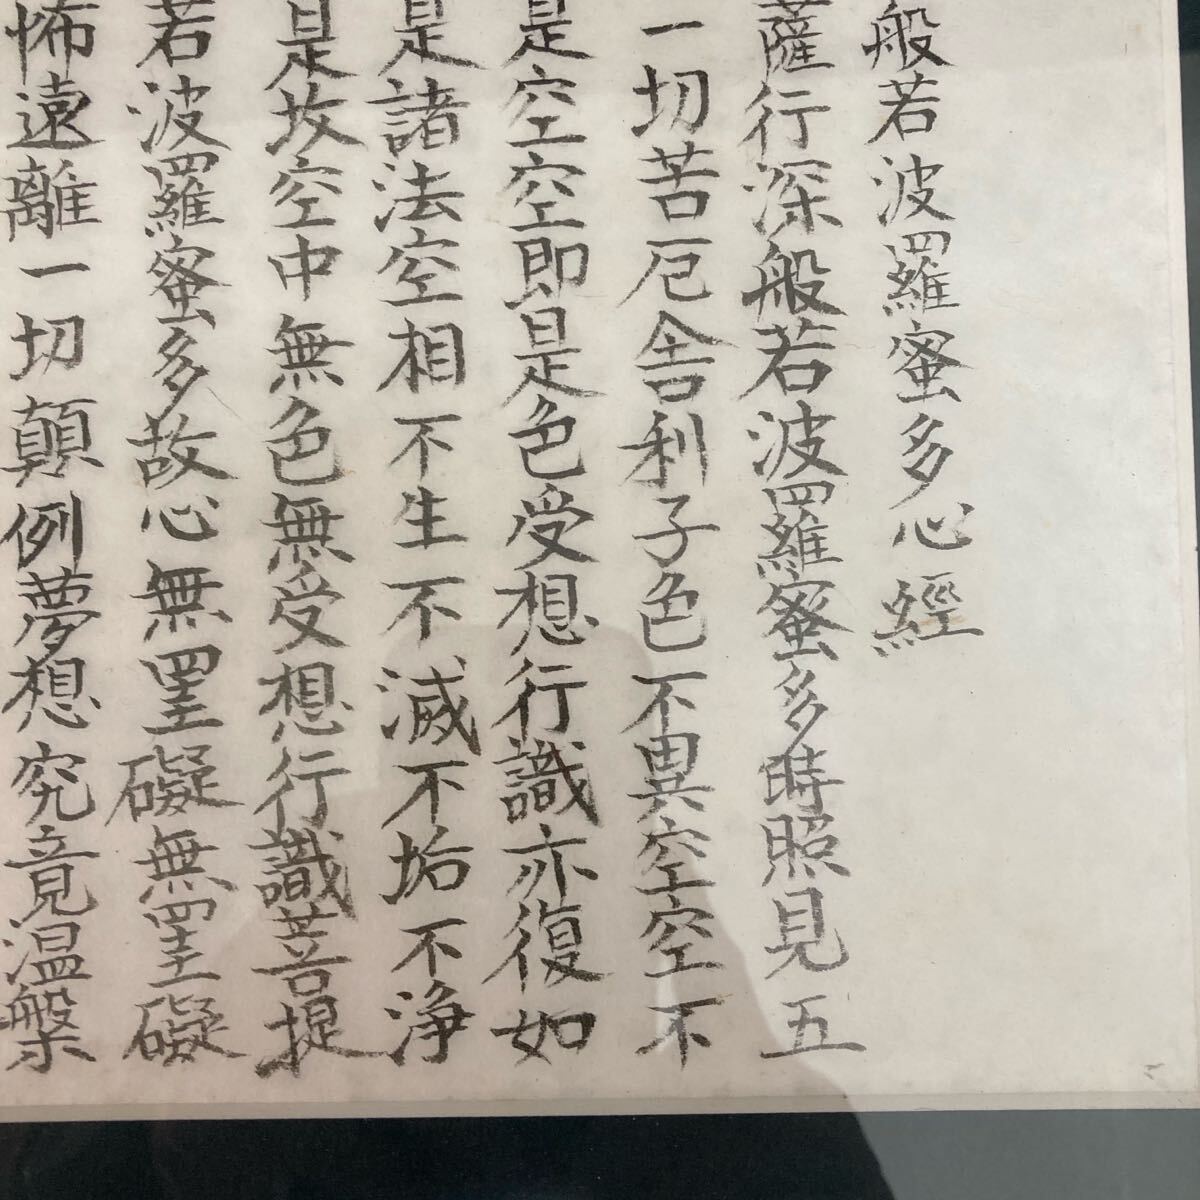 般若波羅蜜多心經
薩行深般若波羅蜜多時照見五
一切苦厄舍利子色不異空空不
是空空即是色受想行識亦復如
是諸法空相不生不滅不垢不淨
是故空中無色無受想行識菩提
若波羅蜜多故心無罣礙無罣礙
怖遠離一切顛例夢想究竟温槃